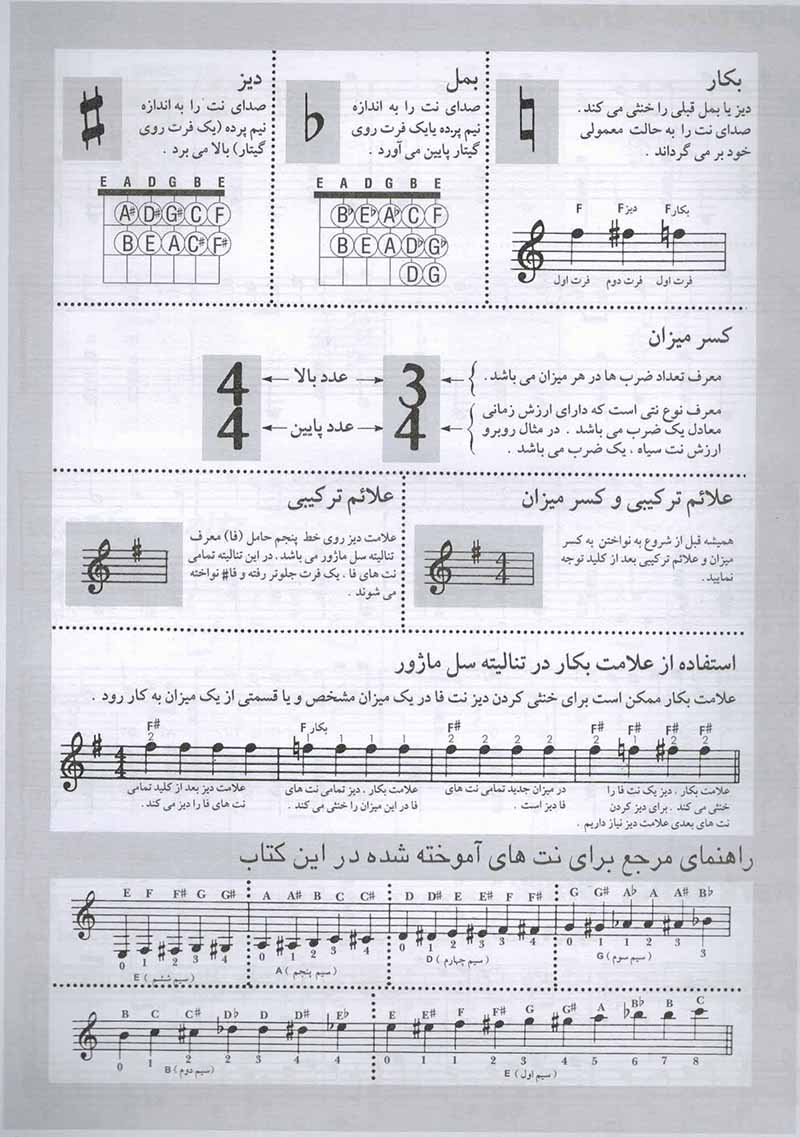 بکار
دیز یا بمل قبلی را خنثی می کند .
صدای نت را به حالت معمولی
خود بر می گرداند .
F F دیز F بکار
فرت اول فرت دوم فرت اول
بمل
صدای نت را به اندازه
نیم پرده یایک فرت روی
گیتار پایین می آورد .
E A D G B E
G♭ E♭ A♭ C F
B E A D♭ G♭
D G
دیز
صدای نت را به اندازه
نیم پرده (یک فرت روی
گیتار) بالا می برد .
E A D G B E
A# D# G# C F
B E A C# F#
کسر میزان
معرف تعداد ضرب ها در هر میزان می باشد .
معرف نوع نتی است که دارای ارزش زمانی
معادل یک ضرب می باشد . در مثال روبرو
ارزش نت سیاه ، یک ضرب می باشد .
3 عدد بالا 4
4 عدد پایین 4
علائم ترکیبی و کسر میزان
همیشه قبل از شروع به نواختن به کسر
میزان و علائم ترکیبی بعد از کلید توجه
نمایید .
4
4
علائم ترکیبی
علامت دیز روی خط پنجم حامل (فا) معرف
تنالیته سل ماژور می باشد . در این تنالیته تمامی
نت های فا ، یک فرت جلوتر رفته و فا# نواخته
می شوند .
استفاده از علامت بکار در تنالیته سل ماژور
علامت بکار ممکن است برای خنثی کردن دیز نت فا در یک میزان مشخص و یا قسمتی از یک میزان به کار رود .
F# F بکار F# F# F F# F#
2 1 1 1 1 2 2 2 2 2 1 2 2
4
4
علامت دیز بعد از کلید تمامی
نت های فا را دیز می کند .
علامت بکار ، دیز تمامی نت های
فا در این میزان را خنثی می کند .
در میزان جدید تمامی نت های
فا دیز است .
علامت بکار ، دیز یک نت فا را
خنثی می کند . برای دیز کردن
نت های بعدی علامت دیز نیاز داریم .
راهنمای مرجع برای نت های آموخته شده در این کتاب
E F F# G G# A A# B C C# D D# E E# F F# G G# A♭ A A# B♭
0 1 2 3 4 0 1 2 3 4 0 1 2 3 3 4 0 1 1 2 3 3
E (سیم ششم) A (سیم پنجم) D (سیم چهارم) G (سیم سوم)
B C C# D♭ D D# E♭ E E# F F# G G# A B♭ B C
0 1 2 2 3 4 4 0 1 1 2 3 4 5 6 7 8
B (سیم دوم) E (سیم اول)